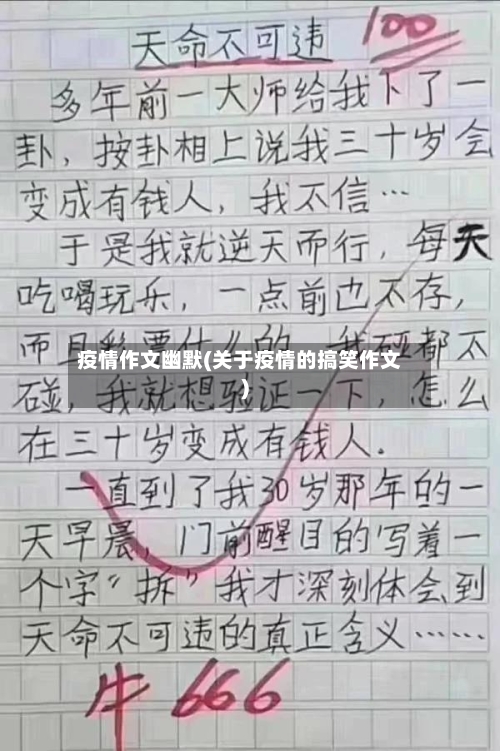 天命不可违
100
多年前一大师给我下了一
卦，按卦相上说我三十岁会
变成有钱人，我不信…
于是我就逆天而行，每天
吃喝玩乐，一点前也不存，
而且彩票什么的，我碰都不
疫情作文幽默(关于疫情的搞笑作文
)
碰，我就想验证一下，怎么
在三十岁变成有钱人。
一直到了我30岁那年的一
天早晨，门前醒目的写着一
个字“拆”我才深刻体会到
天命不可违的真正含义……
牛666